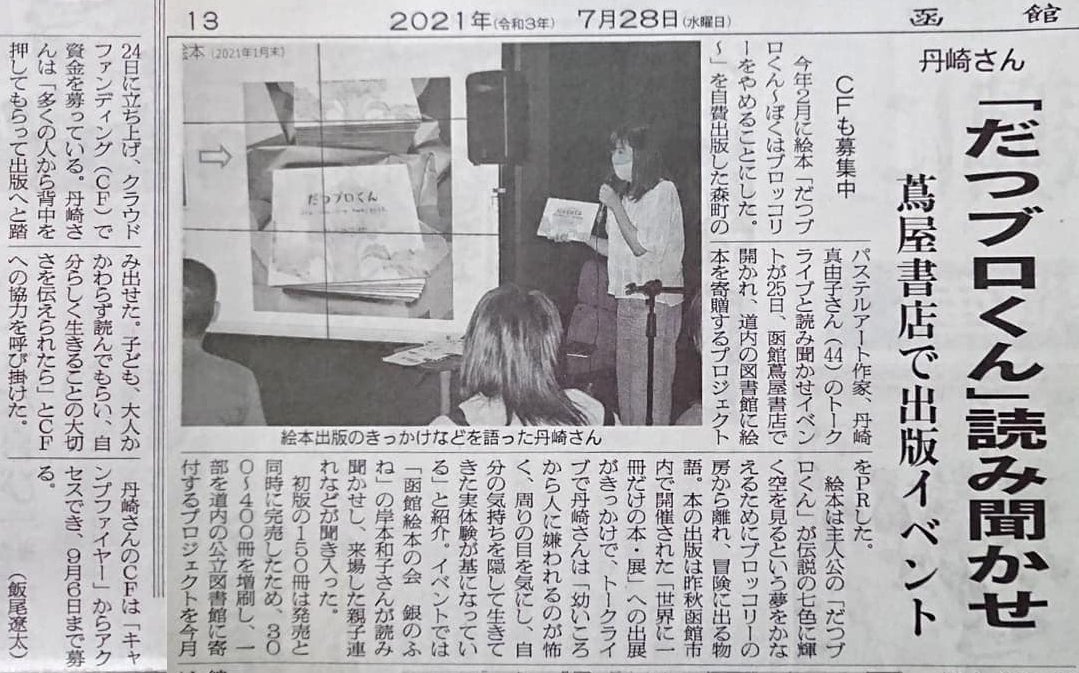 13
2021年(令和3年) 7月28日(水曜日)
函館
丹崎さん
「だつブロくん」読み聞かせ
蔦屋書店で出版イベント
CFも募集中
今年2月に絵本「だつブ
ロくん〜ぼくはブロッコリ
ーをやめることにした。
〜」を自費出版した森町の
パステルアート作家、丹崎
真由子さん(44)のトーク
ライブと読み聞かせイベン
トが25日、函館蔦屋書店で
開かれ、道内の図書館に絵
本を寄贈するプロジェクト
をPRした。
絵本は主人公の「だつブ
ロくん」が伝説の七色に輝
く空を見るという夢をかな
えるためにブロッコリーの
房から離れ、冒険に出る物
語。本の出版は昨秋函館市
内で開催された「世界に一
冊だけの本・展」への出展
がきっかけで、トークライ
ブで丹崎さんは「幼いころ
から人に嫌われるのが怖
く、周りの目を気にし、自
分の気持ちを隠して生きて
きた実体験が基になってい
る」と紹介。イベントでは
「函館絵本の会 銀のふ
ね」の岸本和子さんが読み
聞かせし、来場した親子連
れなどが聞き入った。
初版の150冊は発売と
同時に完売したため、30
0〜400冊を増刷し、一
部を道内の公立図書館に寄
付するプロジェクトを今月
24日に立ち上げ、クラウド
ファンディング(CF)で
資金を募っている。丹崎さ
んは「多くの人から背中を
押してもらって出版へと踏
み出せた。子ども、大人か
かわらず読んでもらい、自
分らしく生きることの大切
さを伝えられたら」とCF
への協力を呼び掛けた。
丹崎さんのCFは「キャ
ンプファイヤー」からアク
セスでき、9月6日まで募
る。
(飯尾遼太)
絵本(2021年1月末)
だつブロくん
絵本出版のきっかけなどを語った丹崎さん